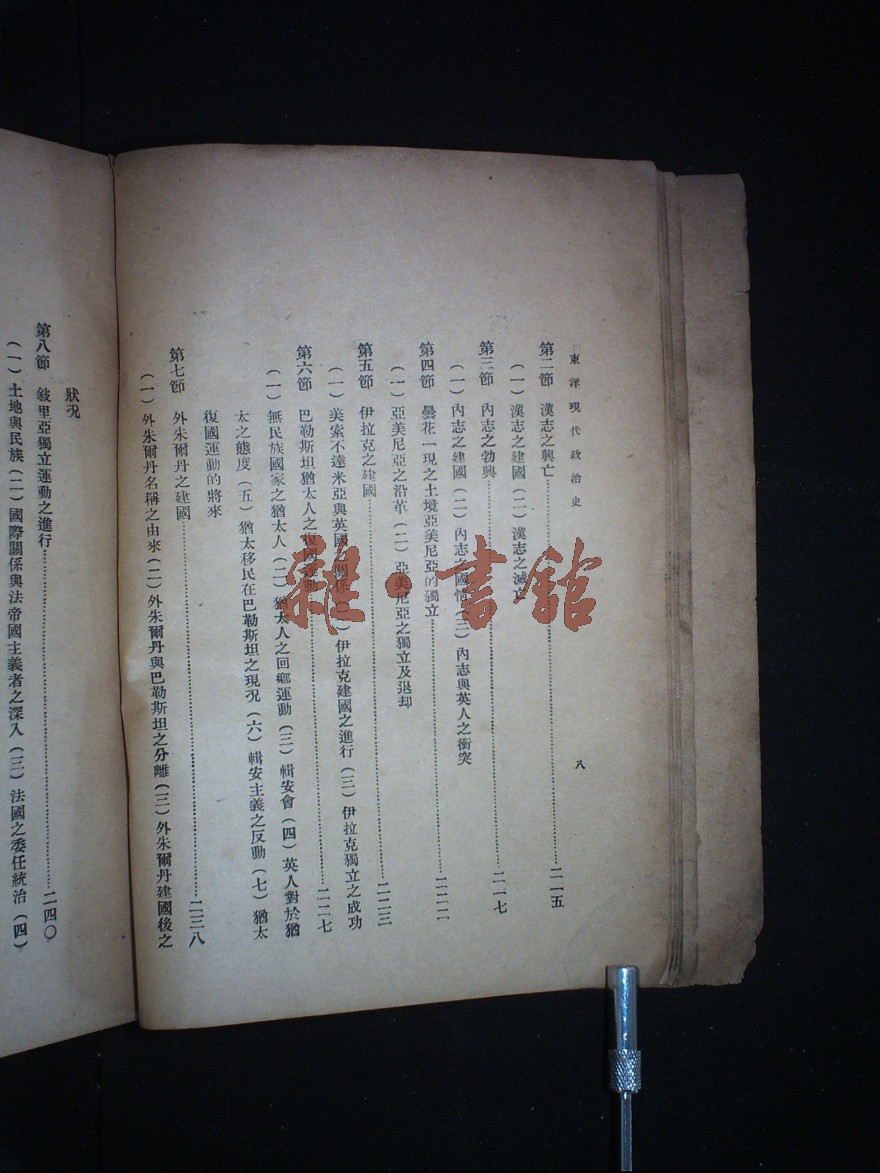 東洋現代政治史
八
第二節 漢志之興亡 二一五
(一)漢志之建國(二)漢志之滅亡
第三節 內志之勃興 二一七
(一)內志之建國(二)內志之國情(三)內志與英人之衝突
第四節 曇花一現之土境亞美尼亞的獨立 二二二
(一)亞美尼亞之沿革(二)亞美尼亞之獨立及退却
第五節 伊拉克之建國 二二三
(一)美索不達米亞與英國之關係(二)伊拉克建國之進行(三)伊拉克獨立之成功
第六節 巴勒斯坦猶太人之復國運動 二二七
(一)無民族國家之猶太人(二)猶太人之回鄉運動(三)輯安會(四)英人對於猶
太之態度(五)猶太移民在巴勒斯坦之現况(六)輯安主義之反動(七)猶太
復國運動的將來
第七節 外朱爾丹之建國 二三八
(一)外朱爾丹名稱之由來(二)外朱爾丹與巴勒斯坦之分離(三)外朱爾丹建國後之
狀况
第八節 敍里亞獨立運動之進行 二四〇
(一)土地與民族(二)國際關係與法帝國主義者之深入(三)法國之委任統治(四)
雜·書館